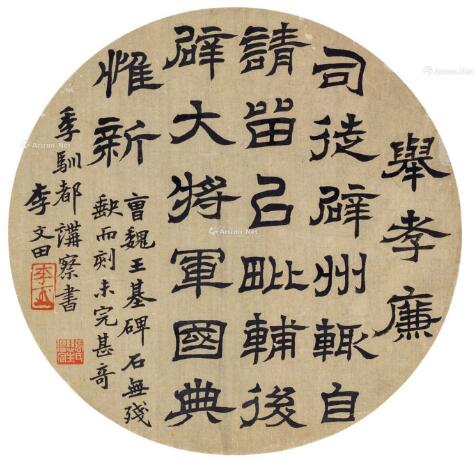 舉孝廉
司徒辟州輒自
請留以毗輔後
辟大將軍國典
惟新
曹魏王基碑石無殘
缺而刻未完甚奇
季馴都講察書
李文田